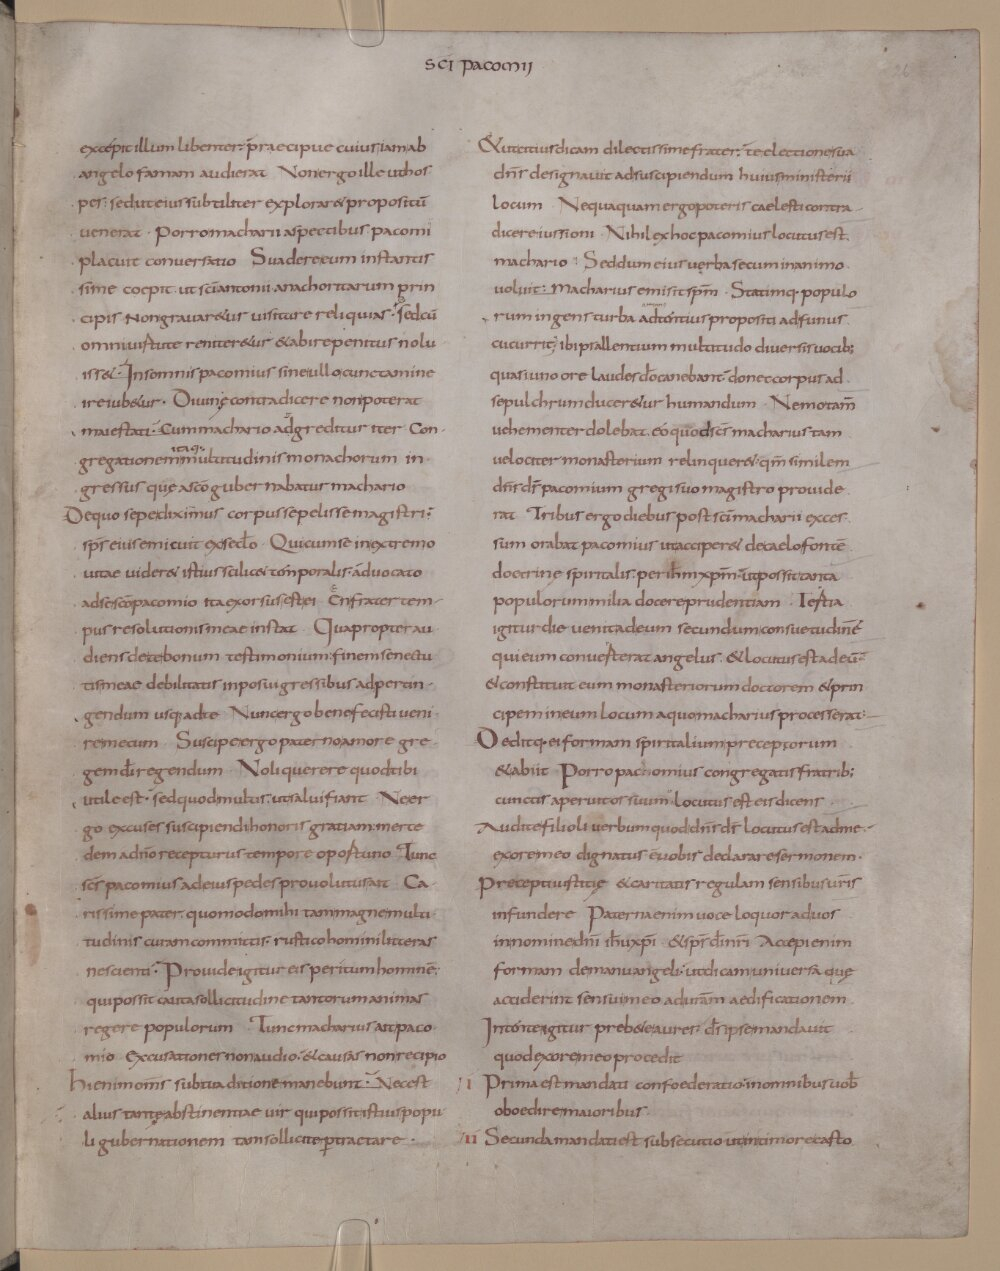 SCI PACOMII
26
excepit illum libenter. praecipue cuius iam ab
angelo famam audierat Non ergo ille ut hos
pes. sed ut eius subtiliter explorar& propositū
venerat · Porro macharii aspectibus pacomi
placuit conversatio Suadere eum instantis
sime coepit. ut sc̄i antonii anachoritarum prin
cipis non gravar&ur visitare reliquias. sed cū
omni virtute reniter&ur & abire penitus nolu
iss&. Insomnis pacomius sine ullo cunctamine
ire iub&ur. Divinę contradicere non poterat
maiestati. Cum machario adgreditur iter Con
gregationem itaq. multitudinis monachorum in
gressus quę a sc̄o gubernabatur machario
De quo sepe diximus corpus sepelisse magistri.
sp̄s eius emicuit ex sed̄o Qui cum se in extremo
vitae vider& istius scilic& temporalis. advocato
ad se sc̄o pacomio ita exorsus est ei En frater tem
pus resolutionis meae instat Quapropter au
diens de te bonum testimonium. finem senectu
tis meae debilitatis inposui gressibus ad pertin
gendum usq. ad te Nunc ergo bene fecisti veni
re mecum Suscipe ergo paterno amore gre
gem d̄i regendum Noli querere quod tibi
utile est. sed quod multis. ut salvi fiant Ne er
go excuses suscipiendi honoris gratiam. mercē
dem a dn̄o recepturus tempore oportuno Tunc
sc̄s pacomius ad eius pedes provolutus ait Ca
rissime pater. quomodo mihi tam magne multi
tudinis curam committis. rustico homini litteras
nescienti. Provide igitur eis peritum hominē.
qui possit cauta sollicitudine tantorum animas
regere populorum Tunc macharius ait paco
mio Excusationes non audio. & causas non recipio
hi enim om̄s sub tua ditione manebunt. Nec est
alius tantę abstinentiae vir qui possit istius popu
li gubernationem tam sollicite ptractare.
& ut citius dicam dilectissime frater. te electione sua
dn̄s designavit ad suscipiendum huius ministerii
locum Nequaquam ergo poteris caelesti contra
dicere iussioni · Nihil ex hoc pacomius locutus est
machario : Sed dum eius verba secum in animo
voluit. Macharius emisit sp̄m · Statimq. populo
rum ingens turba ad tontius propositi ad funus
cucurrit; ibi psallentium multitudo diversis vocib;
quasi uno ore laudes dō canebant. donec corpus ad
sepulchrum ducer&ur humandum · Nemo tam̄
vehementer dolebat. eo quod sc̄s macharius tam
velociter monasterium relinquer&. qm̄ similem
dn̄s d̄s pacomium gregi suo magistro provide
rat Tribus ergo diebus post sc̄i macharii exces
sum orabat pacomius ut acciper& de caelo fontē
doctrine spiritalis. per ih̄m xp̄m. ut possit tanta
populorum milia docere prudentiam Tertia
igitur die venit ad eum secundum consuetudinē
qui eum converterat angelus. & locutus est ad eū.
& constituit eum monasteriorum doctorem & prin
cipem in eum locum a quo macharius processerat.
Deditq. ei formam spiritalium preceptorum
& abiit Porro pachomius congregatis fratrib;
cunctis aperuit os suum. locutus est eis dicens
Audite filioli verbum quod dn̄s d̄s locutus est ad me.
ex ore meo dignatus ē vobis declarare sermonem.
Precepti iustitię & caritatis regulam sensibus vr̄is
infundere Paterna enim voce loquor ad vos
in nomine dn̄i ih̄u xp̄i & sp̄s d̄i nr̄i Accepi enim
formam de manu angeli. ut dicam universa quę
acciderint sensui meo ad vr̄am aedificationem
Intente igitur preb&e aures. d̄s ipse mandavit
quod ex ore meo procedit
I Prima est mandati confoederatio. in omnibus vob̄
oboedire maioribus.
II Secunda mandati est subsecutio ut in timore casto